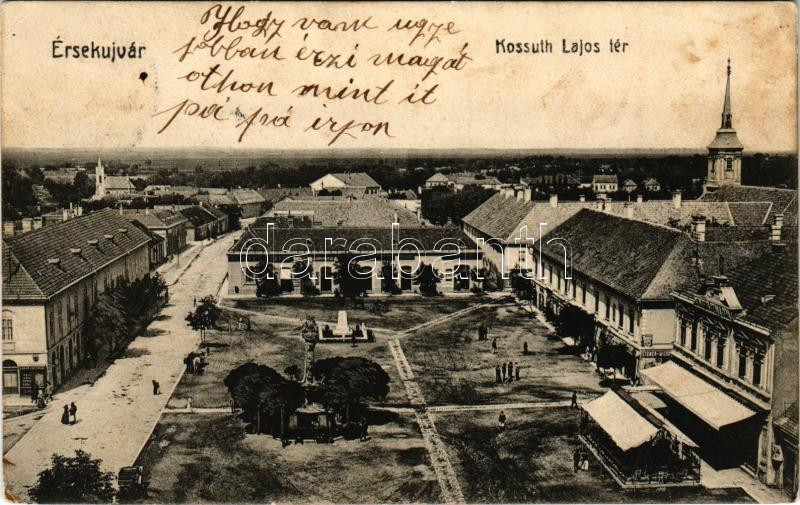 Érsekujvár
Kossuth Lajos tér
Hogy vank ugye
jobban érzi magát
othon mint it
pá pá irjon
darabanth